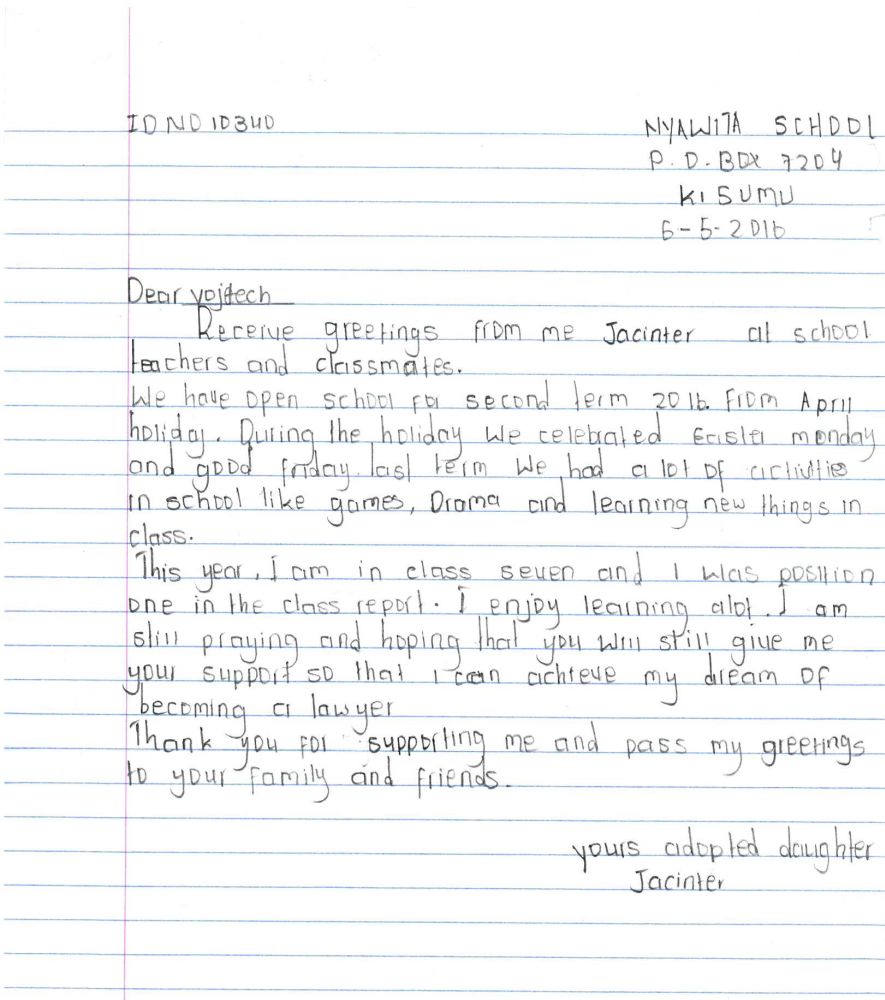 ID NO 10340
NYAWITA SCHOOL
P. O. BOX 7204
KISUMU
6-5-2016
Dear vojtech
Receive greetings from me Jacinter at school
teachers and classmates.
We have open school for second term 2016. From April
holiday. During the holiday we celebrated Easter monday
and good friday. last term we had a lot of activities
in school like games, Drama and learning new things in
class.
This year, I am in class seven and I was position
one in the class report. I enjoy learning alot. I am
still praying and hoping that you will still give me
your support so that i can achieve my dream of
becoming a lawyer
Thank you for supporting me and pass my greetings
to your family and friends.
yours adopted daughter
Jacinter